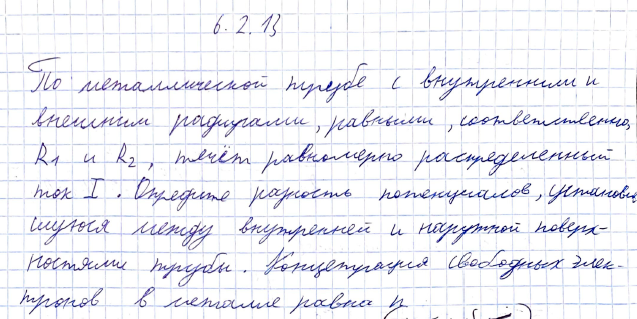 6.2.13
По металлической трубе с внутренним и
внешним радиусами, равными, соответственно,
R1 и R2, течёт равномерно распределенный
ток I. Опредите разность потенциалов, установив
шуюся между внутренней и наружной поверх-
ностями трубы. Концентрация свободных элек-
тронов в металле равна n